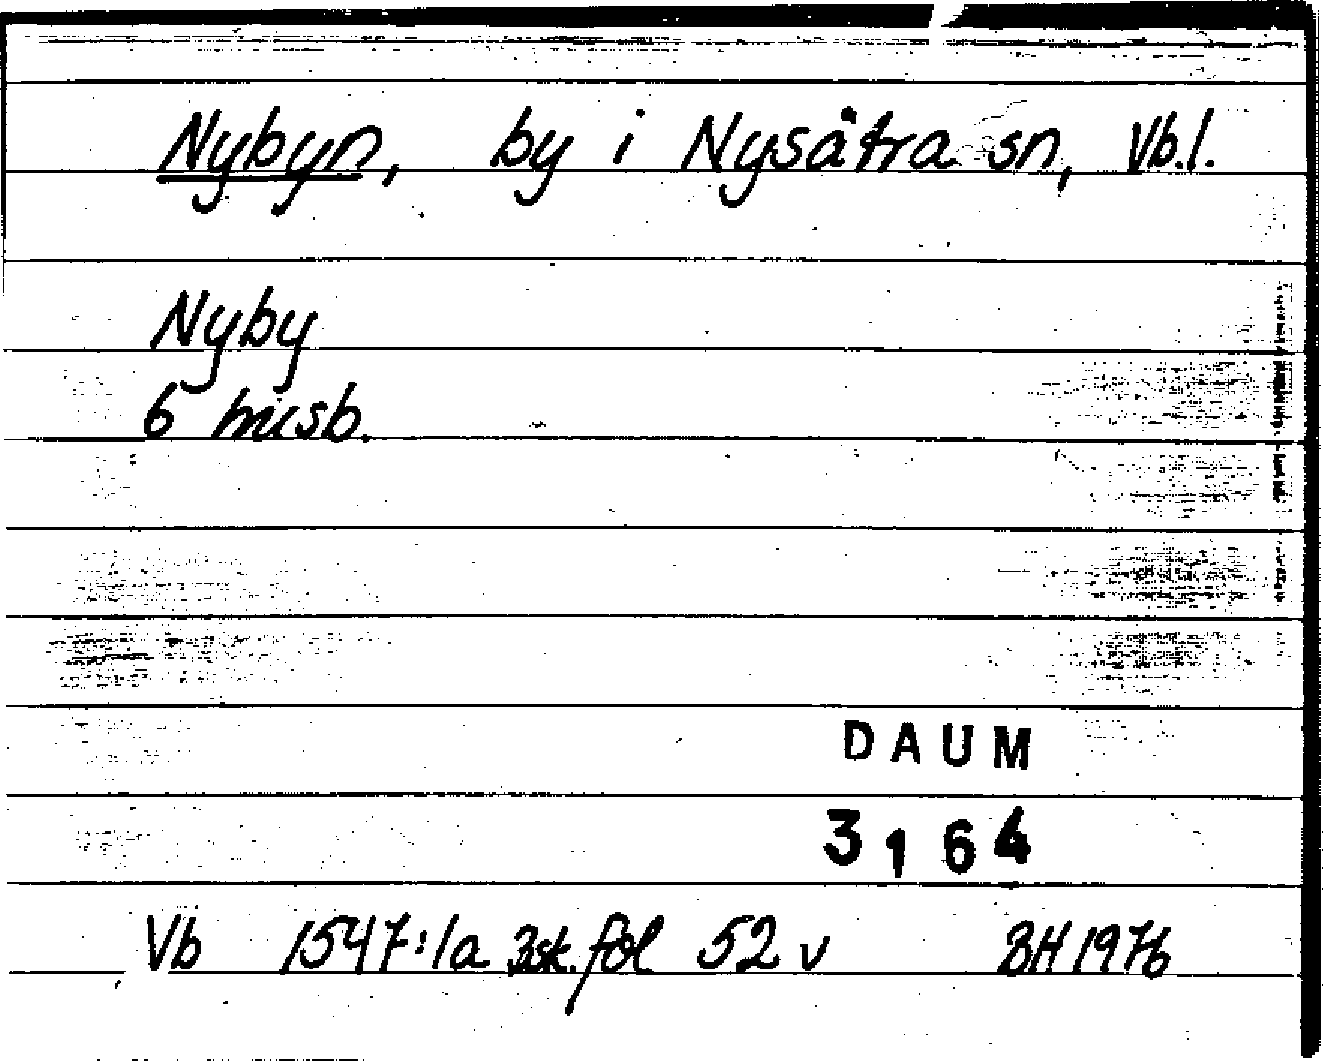 Nybyn, by i Nysätra sn, Vb.l.
Nyby
6 husb.
DAUM
3164
Vb 1547:1a 3sk. fol 52 v BH 1976